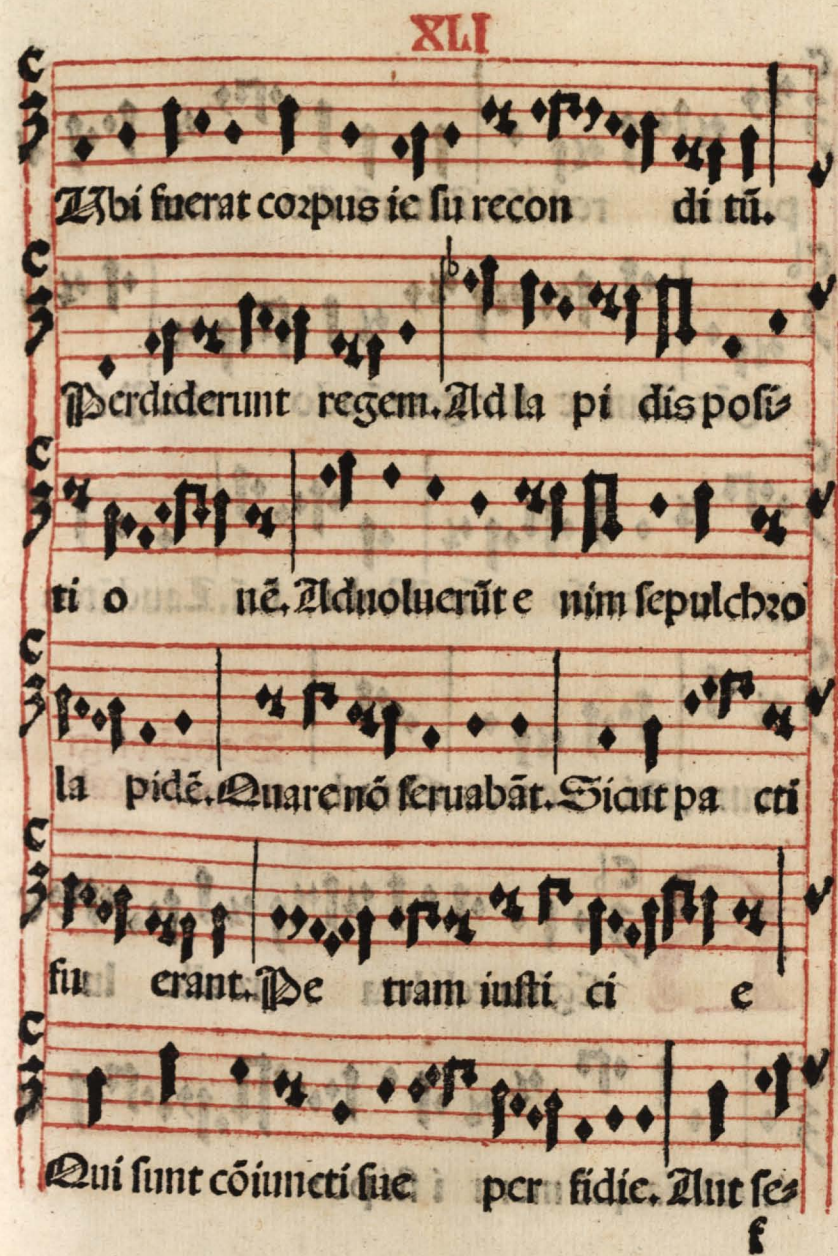 XLI
Ubi fuerat corpus ie su recon di tū.
Perdiderunt regem. Ad la pi dis posi-
ti o nē. Aduoluerūt e nim sepulchro
la pidē. Quare nō seruabāt. Sicut pa cti
fu erant. Pe tram iusti ci e
Qui sunt cōiuncti sue per fidie. Aut se-
f